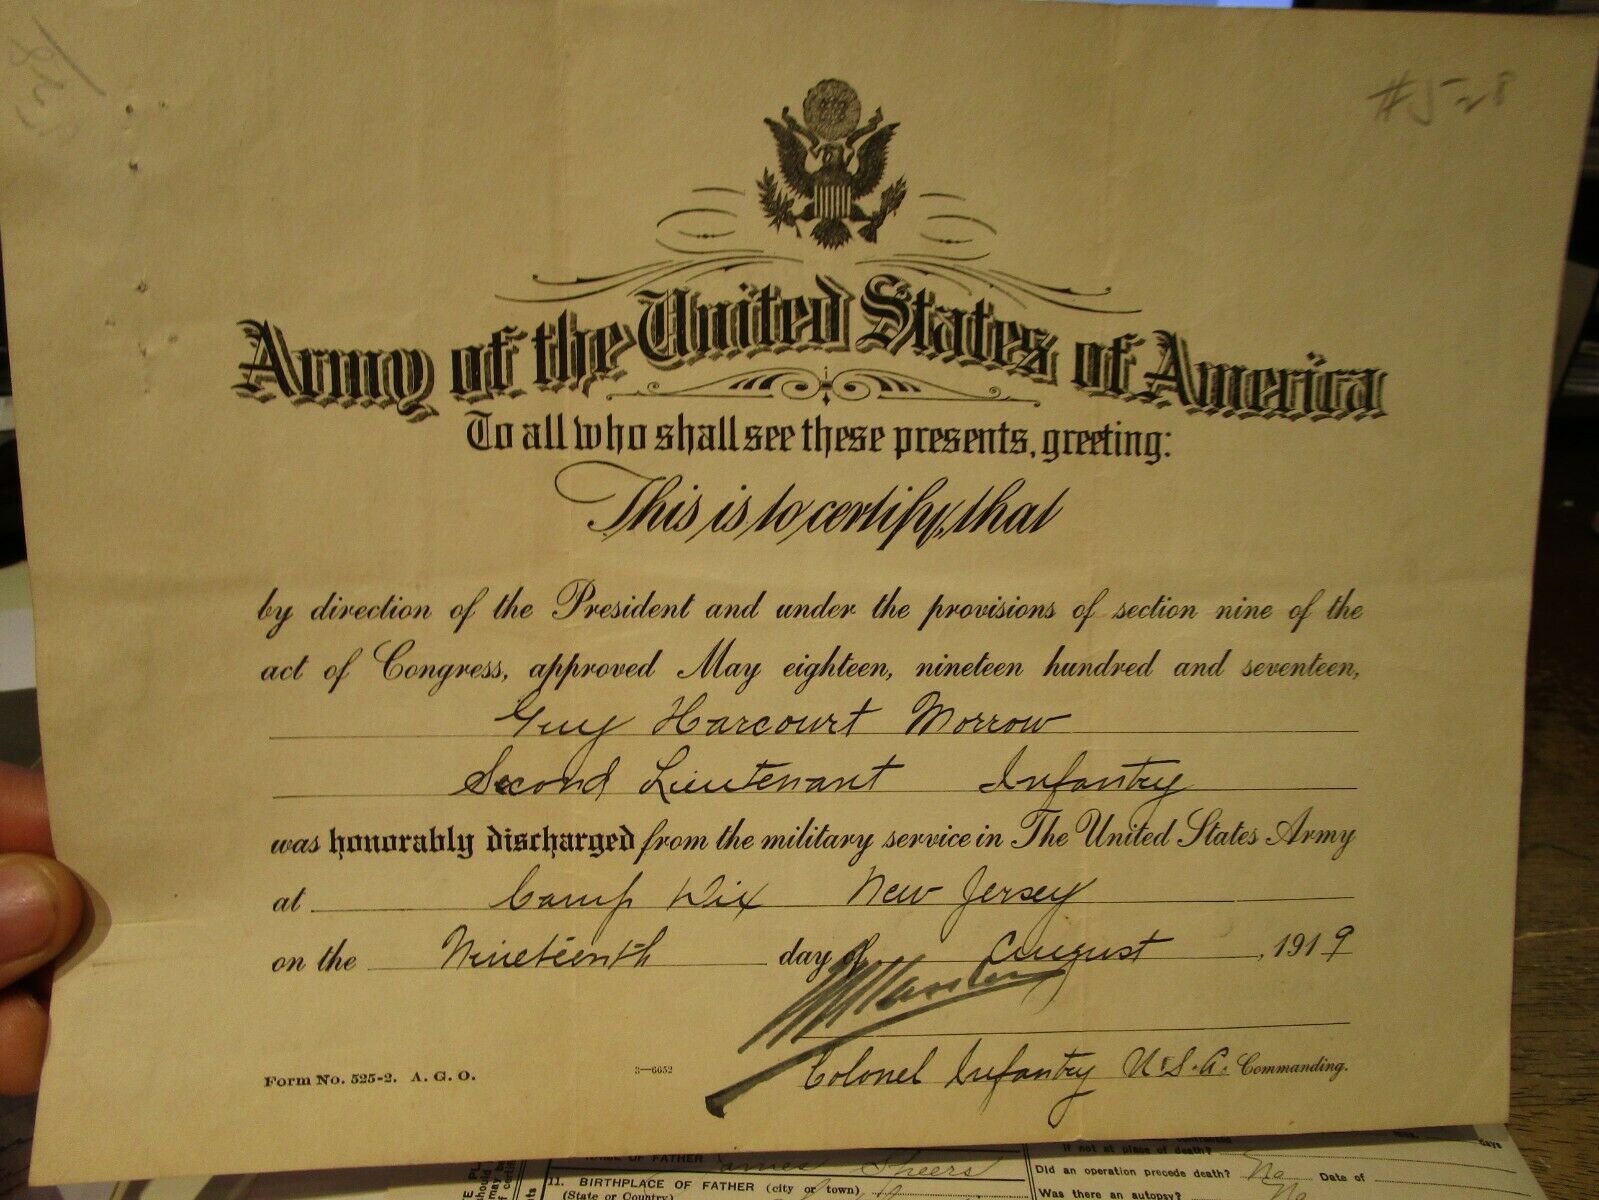 #5-28
Army of the United States of America
To all who shall see these presents, greeting:
This is to certify, that
by direction of the President and under the provisions of section nine of the
act of Congress, approved May eighteen, nineteen hundred and seventeen,
Guy Harcourt Morrow
Second Lieutenant Infantry
was honorably discharged from the military service in The United States Army
at Camp Dix New Jersey
on the Nineteenth day of August, 1919
Colonel Infantry U.S.A. Commanding.
Form No. 525-2. A. G. O. 3—6652
If not at place of death? days
OF FATHER James Sheers
Did an operation precede death? No Date of
11. BIRTHPLACE OF FATHER (city or town)
(State or Country)
Was there an autopsy? No